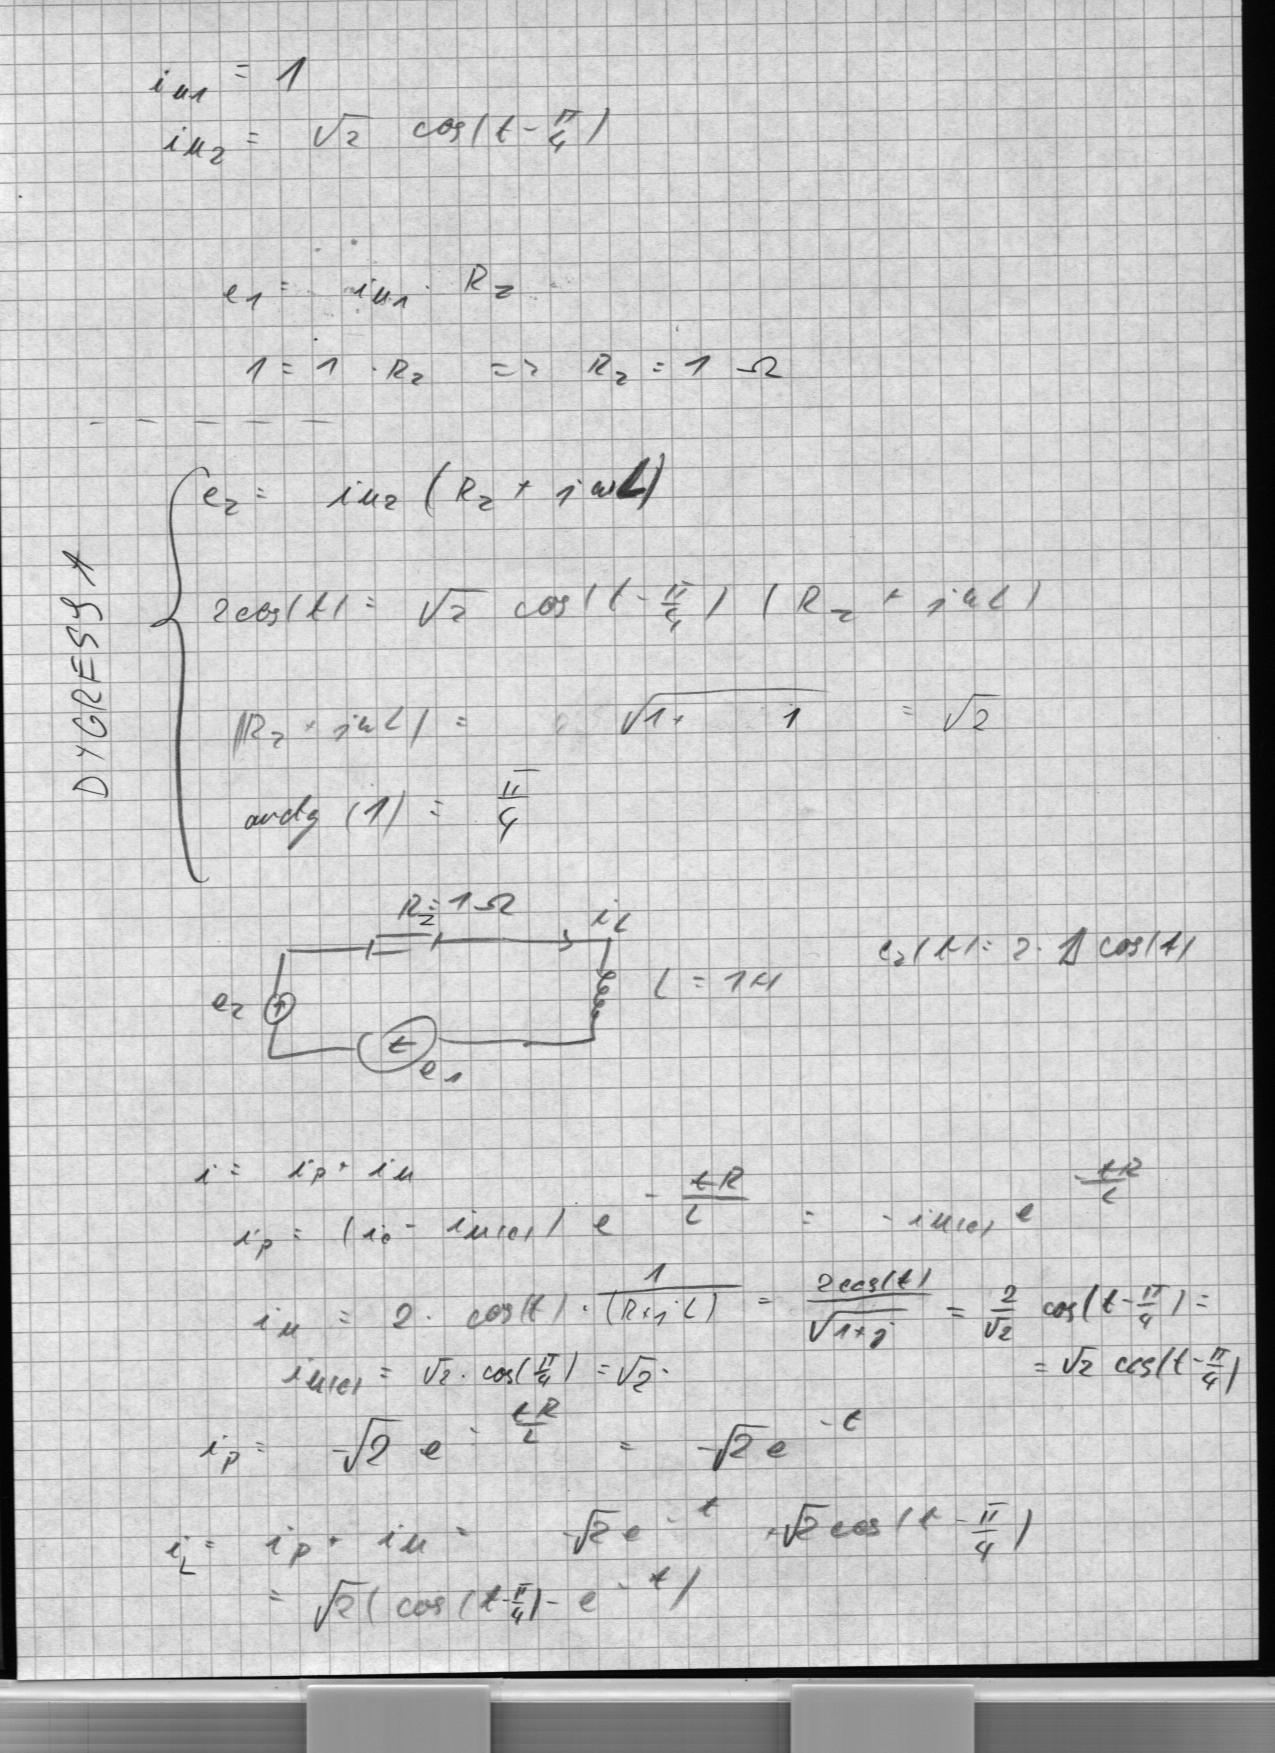 i_u1 = 1
i_u2 = √2 cos(t - π/4)
e_1 = i_u1 · R_2
1 = 1 · R_2 => R_2 = 1 Ω
DYGRESJA
e_2 = i_u2 (R_2 + jωL)
2cos(t) = √2 cos(t - π/4) (R_2 + jωL)
|R_2 + jωL| = √(1 + 1) = √2
arctg (1) = π/4
R_2 = 1 Ω i_L
e_2(t) = 2 · 1 cos(t)
e_2 L = 1H
e_1
i = i_p + i_u
i_p = (i_0 - i_u(0)) e^(-tR/L) = - i_u(0) e^(-tR/L)
i_u = 2 · cos(t) · 1/(R+jL) = 2cos(t)/√(1+j) = 2/√2 cos(t - π/4) =
= √2 cos(t - π/4)
i_u(0) = √2 · cos(π/4) = √2 ·
i_p = -√2 e^(-tR/L) = -√2 e^(-t)
i_L = i_p + i_u = -√2 e^(-t) + √2 cos(t - π/4)
= √2 ( cos(t - π/4) - e^(-t) )